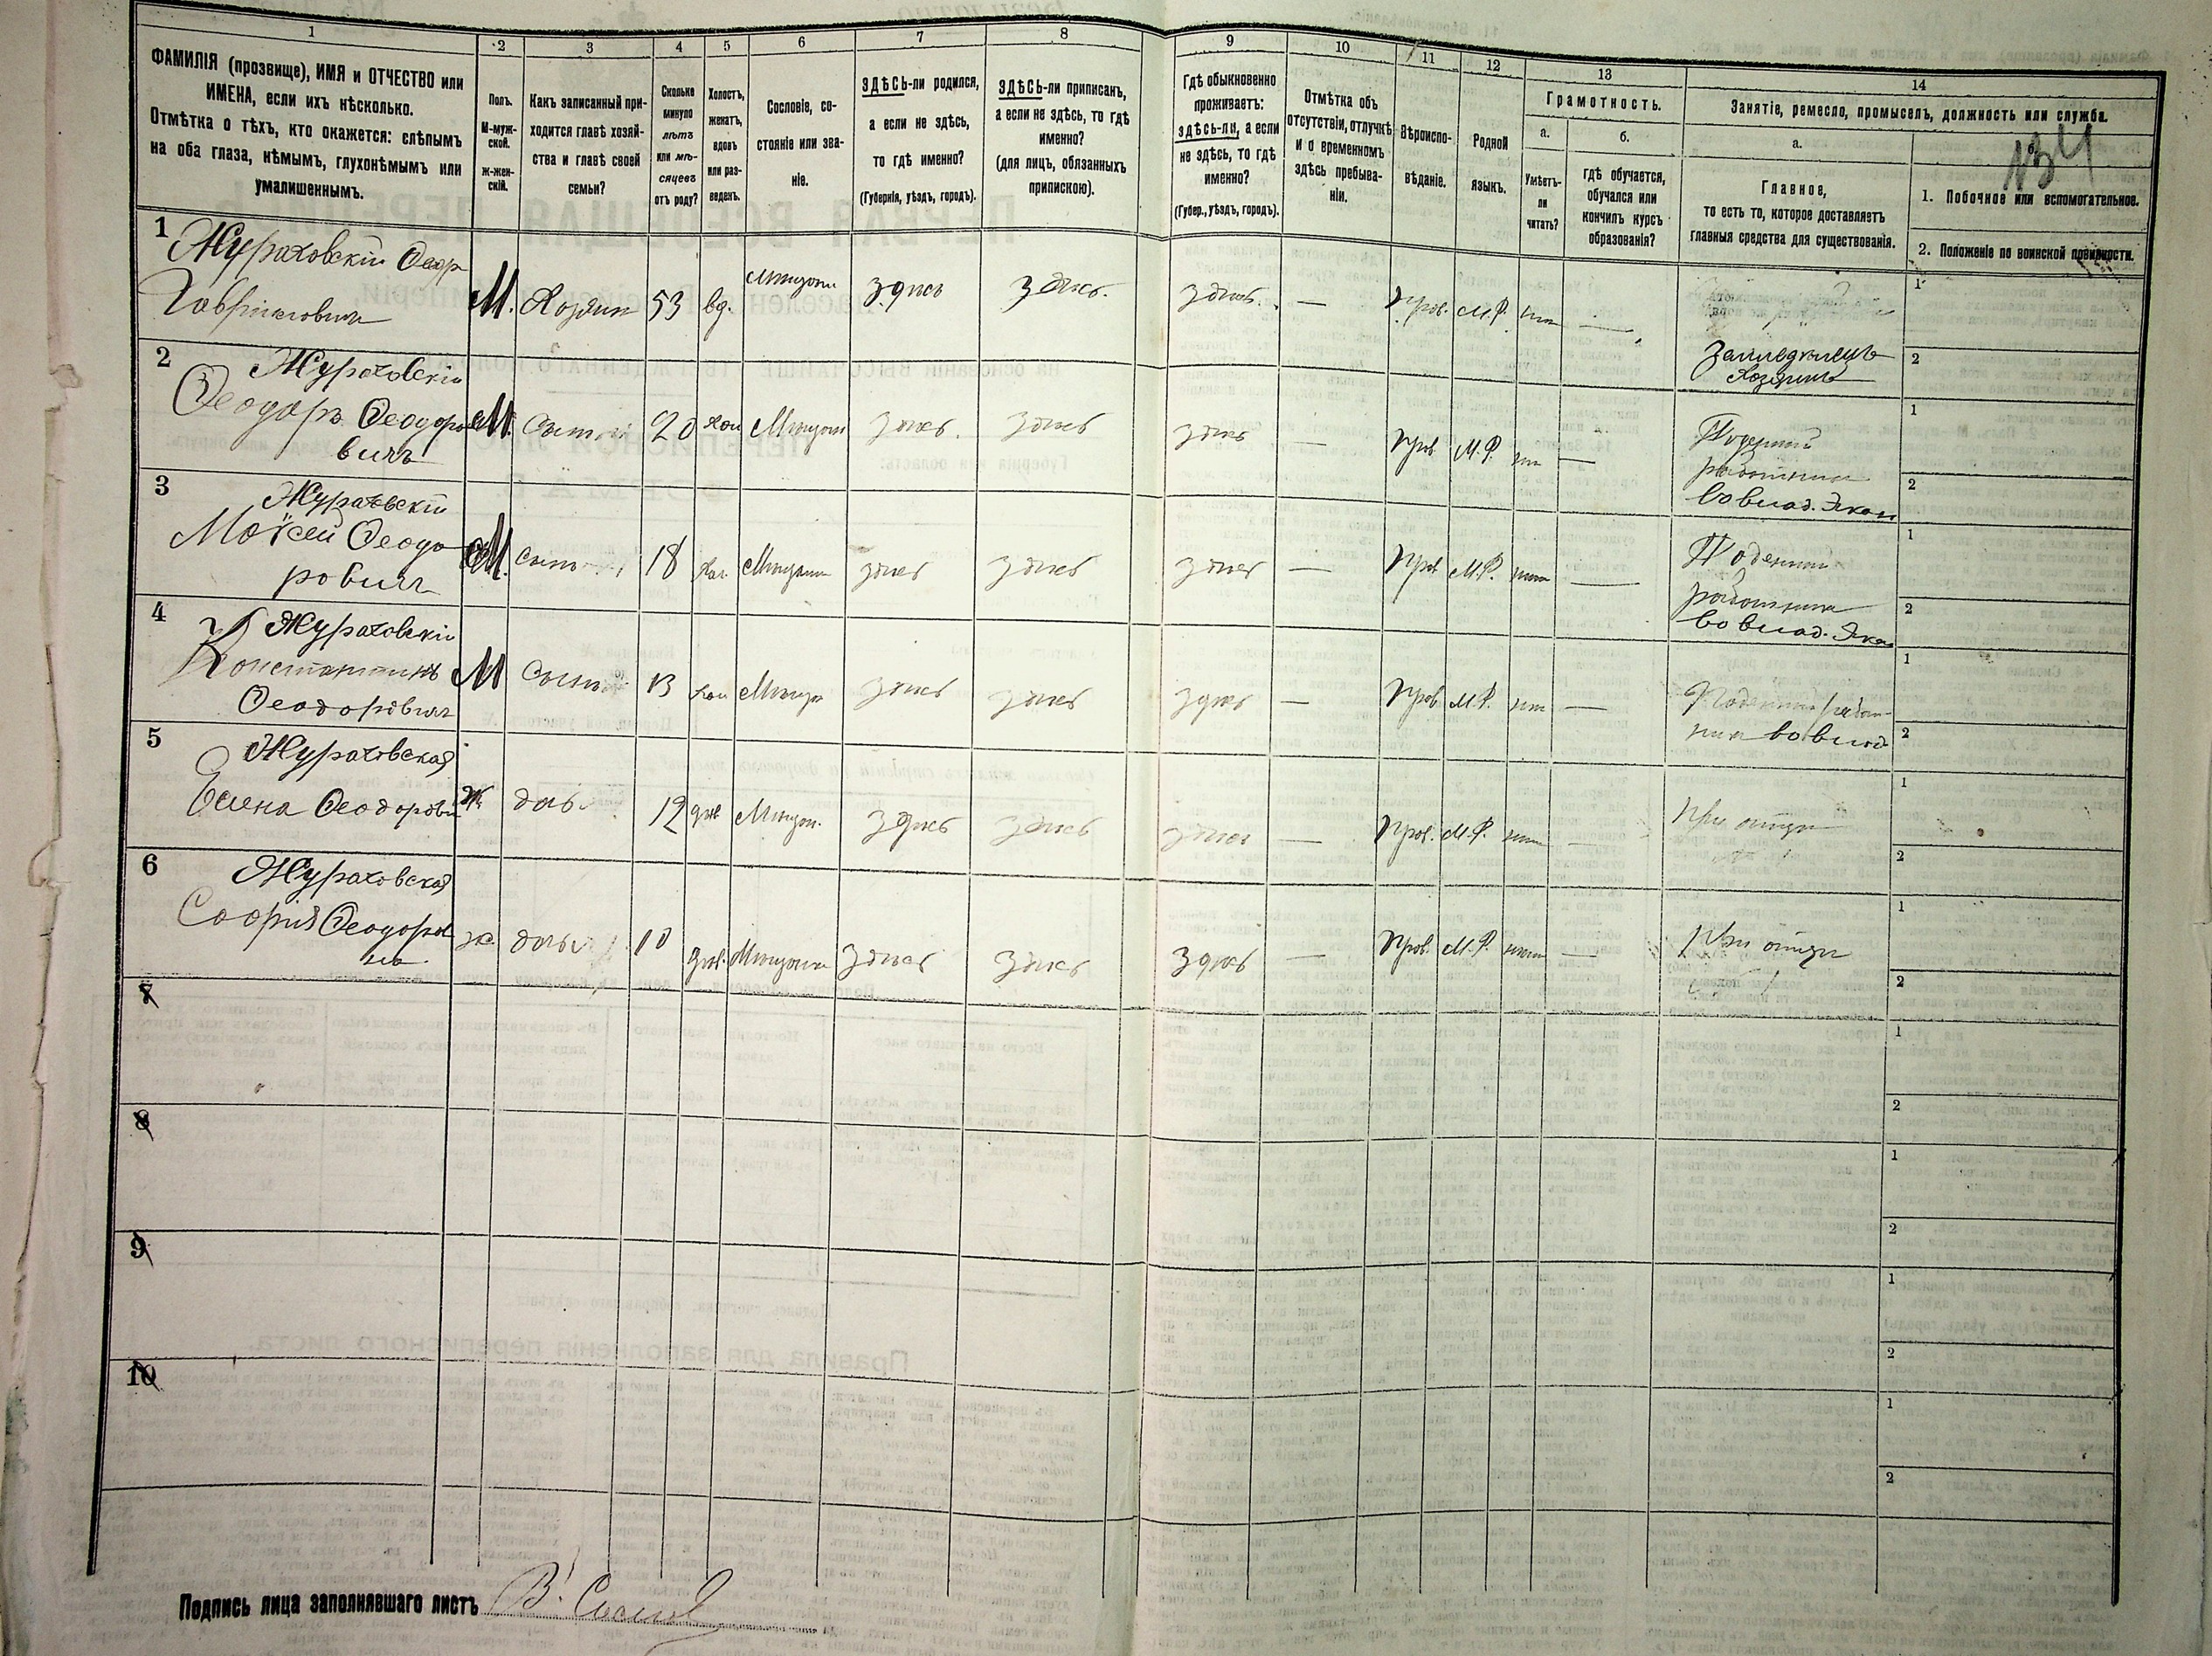 1 2 3 4 5 6 7 8 9 10 11 12 13 14
ФАМИЛІЯ (прозвище), ИМЯ и ОТЧЕСТВО или
ИМЕНА, если ихъ нѣсколько.
Отмѣтка о тѣхъ, кто окажется: слѣпымъ
на оба глаза, нѣмымъ, глухонѣмымъ или
умалишеннымъ.
Полъ.
М-муж-
ской.
Ж-жен-
скій.
Какъ записанный при-
ходится главѣ хозяй-
ства и главѣ своей
семьи?
Сколько
минуло
лѣтъ
или мѣ-
сяцевъ
отъ роду?
Холостъ,
женатъ,
вдовъ
или раз-
веденъ.
Сословіе, со-
стояніе или зва-
ніе.
ЗДѢСЬ-ли родился,
а если не здѣсь,
то гдѣ именно?
(Губернія, уѣздъ, городъ).
ЗДѢСЬ-ли приписанъ,
а если не здѣсь, то гдѣ
именно?
(для лицъ, обязанныхъ
припискою).
Гдѣ обыкновенно
проживаетъ:
здѣсь-ли, а если
не здѣсь, то гдѣ
именно?
(Губер., уѣздъ, городъ).
Отмѣтка объ
отсутствіи, отлучкѣ
и о временномъ
здѣсь пребыва-
ніи.
Вѣроиспо-
вѣданіе.
Родной
языкъ.
Грамотность.
а.
Умѣетъ-
ли
читать?
б.
гдѣ обучается,
обучался или
кончилъ курсъ
образованія?
Занятіе, ремесло, промыселъ, должность или служба.
а.
Главное,
то есть то, которое доставляетъ
главныя средства для существованія.
б.
134
1. Побочное или вспомогательное.
2. Положеніе по воинской повинности.
1 Жураховскій Ѳеор
Гавриловичъ
М. Хозяин 53 вд. здѣсь здѣсь. здѣсь. — Прав. М.Р. нѣт —
Земледѣлецъ
Хозяинъ
1
2
2 Жураховскій
Ѳеодоръ Ѳеодоро
вичъ
М. Сын 20 хол Мѣщан здѣсь. здѣсь здѣсь — Прав М.Р. нѣт —
Поденный
работник
во влад. Экон
1
2
3 Жураховскій
Моѵсей Ѳеодо
ровичъ
М. Сын 18 хол. Мѣщанин здѣсь здѣсь здѣсь — Прав М.Р. нѣт —
Поденный
работник
во влад. Экон
1
2
4 Жураховскій
Константинъ
Ѳеодоровичъ
М Сын 13 хол Мѣщан здѣсь здѣсь здѣсь — Прав. М.Р. нѣт —
Поденный работ-
ник во влад
1
2
5 Жураховская
Елена Ѳеодоровн
Ж дочь 12 дѣв Мѣщан. здѣсь здѣсь здѣсь — Прав. М.Р. нѣт —
При отцѣ
1
2
6 Жураховская
Софія Ѳеодоров
на
ж. дочь 10 дѣв. Мѣщанка здѣсь здѣсь здѣсь — Прав. М.Р. нѣт —
При отцѣ
1
2
7
1
2
8
1
2
9
1
2
10
1
2
Подпись лица заполнявшаго листъ